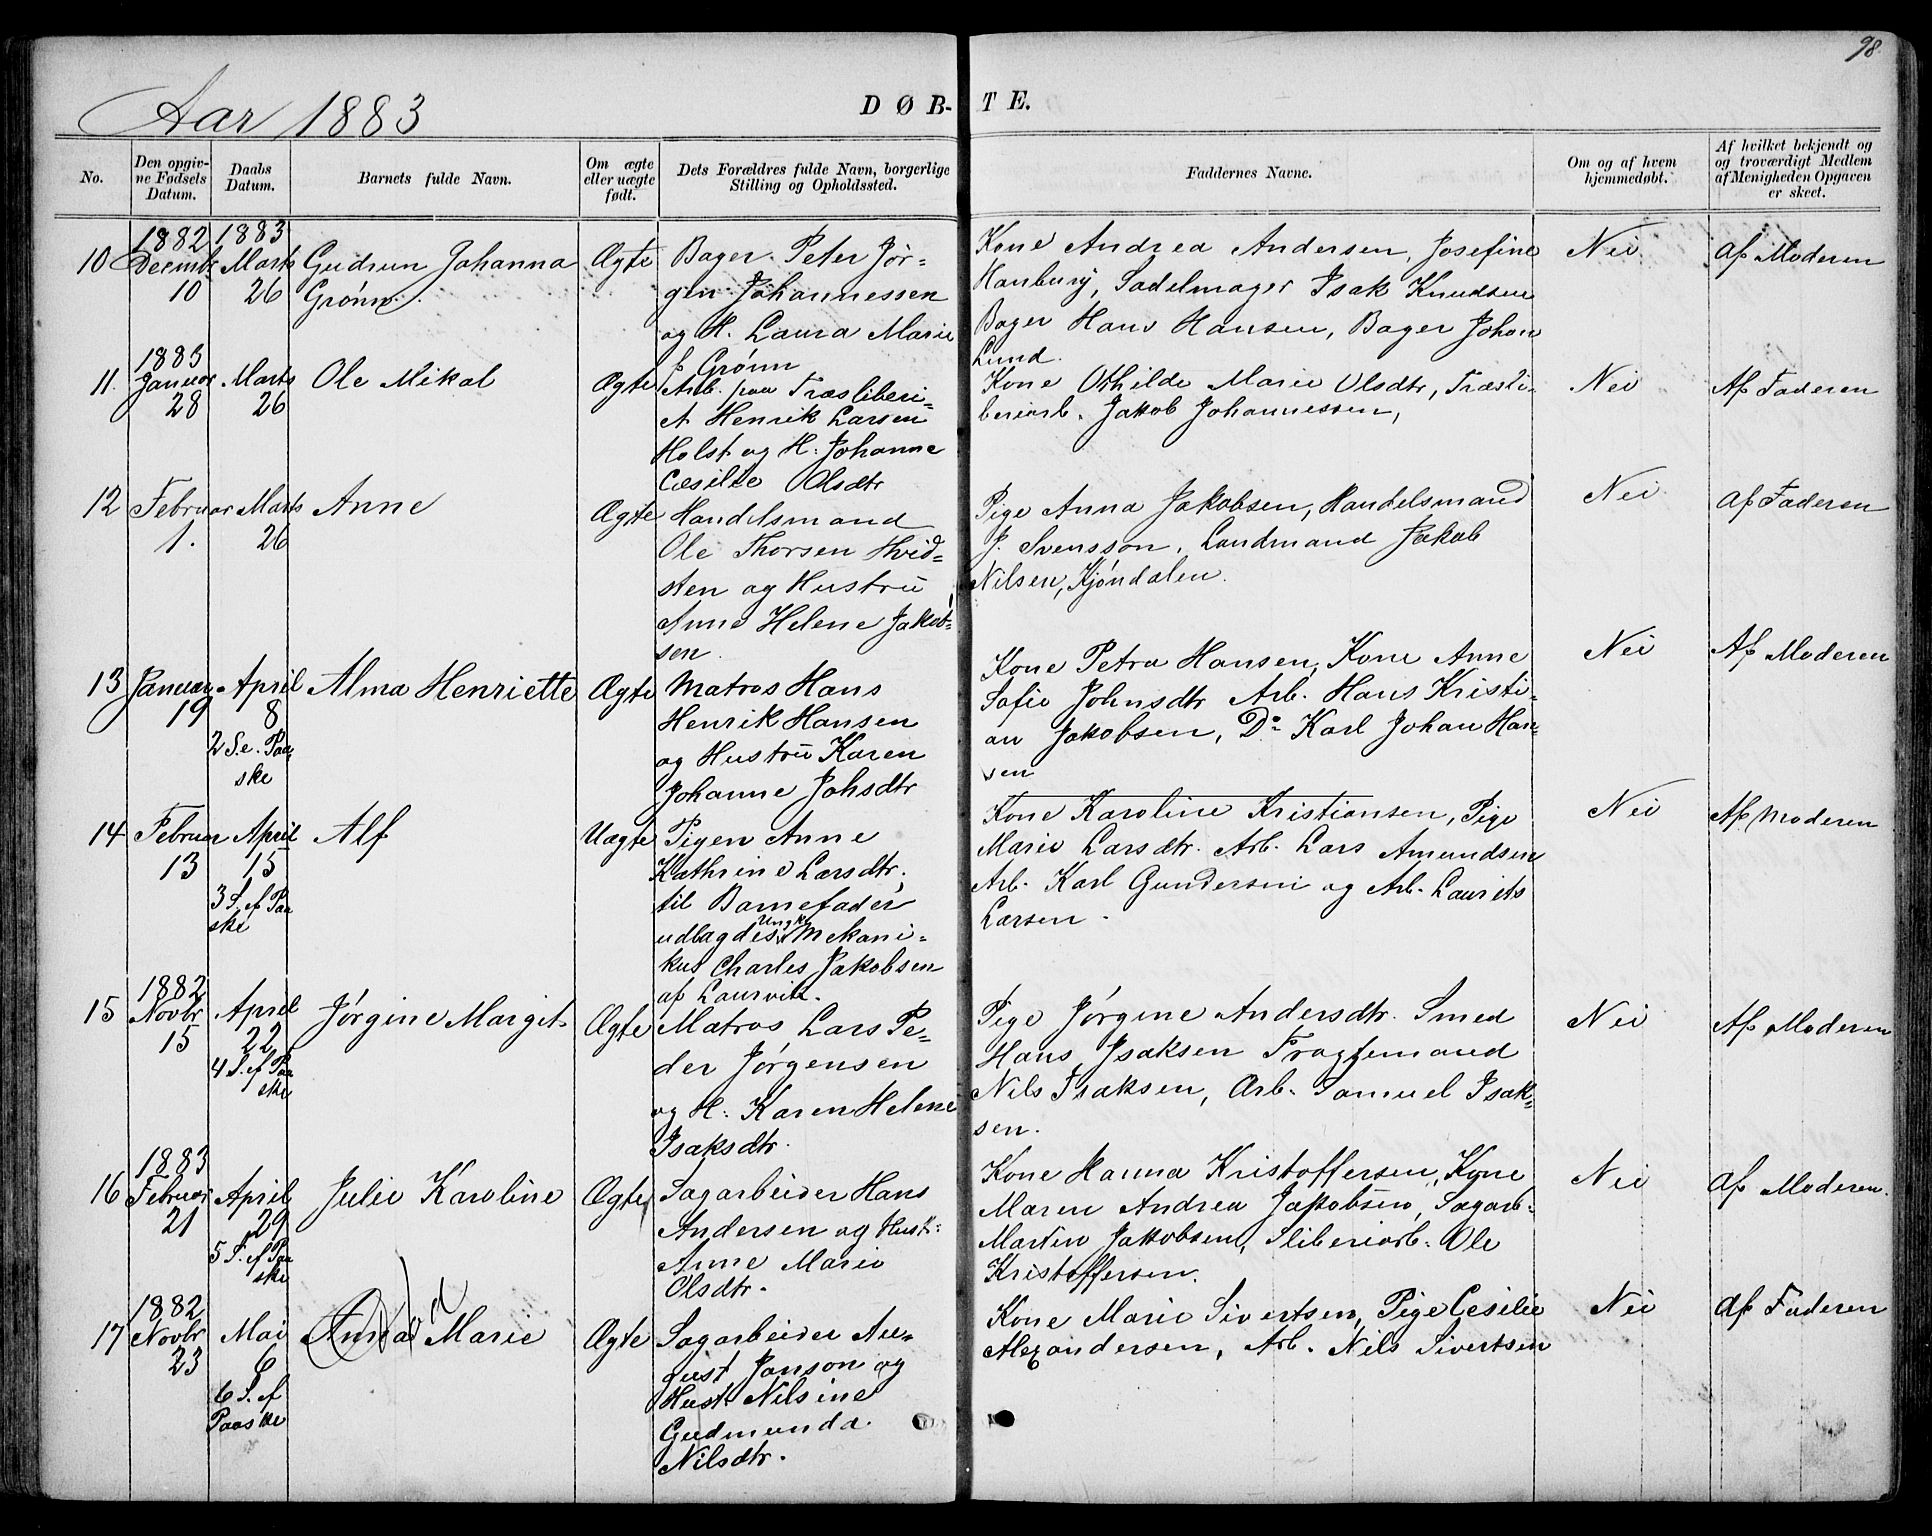 98.
Aar 1883
DØB-TE.
No.
Den opgiv-
ne Fødsels
Datum.
Daabs
Datum.
Barnets fulde Navn.
Om ægte
eller uægte
født.
Dets Forældres fulde Navn, borgerlige
Stilling og Opholdssted.
Faddernes Navne.
Om og af hvem
hjemmedøbt.
Af hvilket bekjendt og
og troværdigt Medlem
af Menigheden Opgaven
er skeet.
10
1882
Decmbr
10
1883
Marts
26
Gudrun Johanna
Grønn.
Ægte
Bager Peter Jør-
gen Johannessen
og H. Laura Marie
f. Grønn
Kone Andrea Andersen, Josefine
Hanburg, Sadelmager Isak Knudsen
Bager Hans Hansen, Bager Johan
Lund.
Nei
Af Moderen
11.
1883
Januar
28
Marts
26
Ole Mikal
Ægte
Arb. paa Træsliberi-
et Henrik Larsen
Holst og H. Johanne
Cæsilie Olsdtr
Kone Othilde Marie Olsdtr, Træsli-
beriarb. Jakob Johannessen,
Nei
Af Faderen
12
Februar
1.
Marts
26
Anne
Ægte
Handelsmand
Ole Thorsen Hvid-
sten og Hustru
Anne Helene Jakob-
sen.
Pige Anna Jakobsen, Handelsmand
J. Svensson, Landmand Jakob
Nilsen, Kjøndalen.
Nei
Af Faderen
13
Januar
19
April
8
2 S. e. Paa-
ske
Alma Henriette
Ægte
Matros Hans
Henrik Hansen
og Hustru Karen
Johanne Johsdtr
Kone Petra Hansen, Kone Anne
Sofie Johnsdtr Arb. Hans Kristi-
an Jakobsen, Do Karl Johan Han-
sen
Nei
Af Moderen
14
Februar
13
April
15
3 S. ef Paa
ske
Alf
Uægte
Pigen Anne
Kathrine Larsdtr,
til Barnefader
udlagdes Ungk. Mekani-
kus Charles Jakobsen
af Laurvik.
Kone Karoline Kristiansen, Pige
Marie Larsdtr. Arb. Lars Amundsen
Arb. Karl Gundersen og Arb. Laurits
Larsen.
Nei
Af Moderen
15
1882
Novbr
15
April
22
4 S. ef Paa
ske
Jørgine Margit
Ægte
Matros Lars Pe-
der Jørgensen
og H. Karen Helene
Isaksdtr.
Pige Jørgine Andersdtr. Smed
Hans Isaksen Fragtemand
Nils Isaksen, Arb. Samuel Isak-
sen.
Nei
Af Moderen
16
1883
Februar
21
April
29
5 S. ef Paa
ske
Julie Karoline
Ægte
Sagarbeider Hans
Andersen og Hust.
Anne Marie
Olsdtr.
Kone Hanna Kristoffersen, Kone
Maren Andrea Jakobsen, Sagarb.
Martin Jakobsen, Sliberiarb. Ole
Kristoffersen.
Nei
Af Moderen.
17
1882
Novbr
23
Mai
6
6 S. ef
Paaske
Marie
Ægte
Sagarbeider Au-
gust Janson og
Hust. Nilsine
Gudmunda
Nilsdtr.
Kone Marie Sivertsen, Pige Cesilie
Alexandersen, Arb. Nils Sivertsen
Nei
Af Faderen